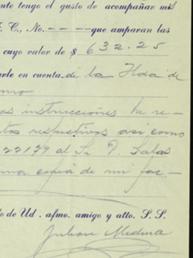 ente tengo el gusto de acompañar mi
F. C., No. -- --- que amparan las
cuyo valor de $ 632.25
arle en cuenta. de la Hda de
as instrucciones le re-
tos respectivos así como
22179 al Sr. F. Salas
ma copia de mi fac-
do de Ud. afmo. amigo y atto. S. S.
Julian Medina